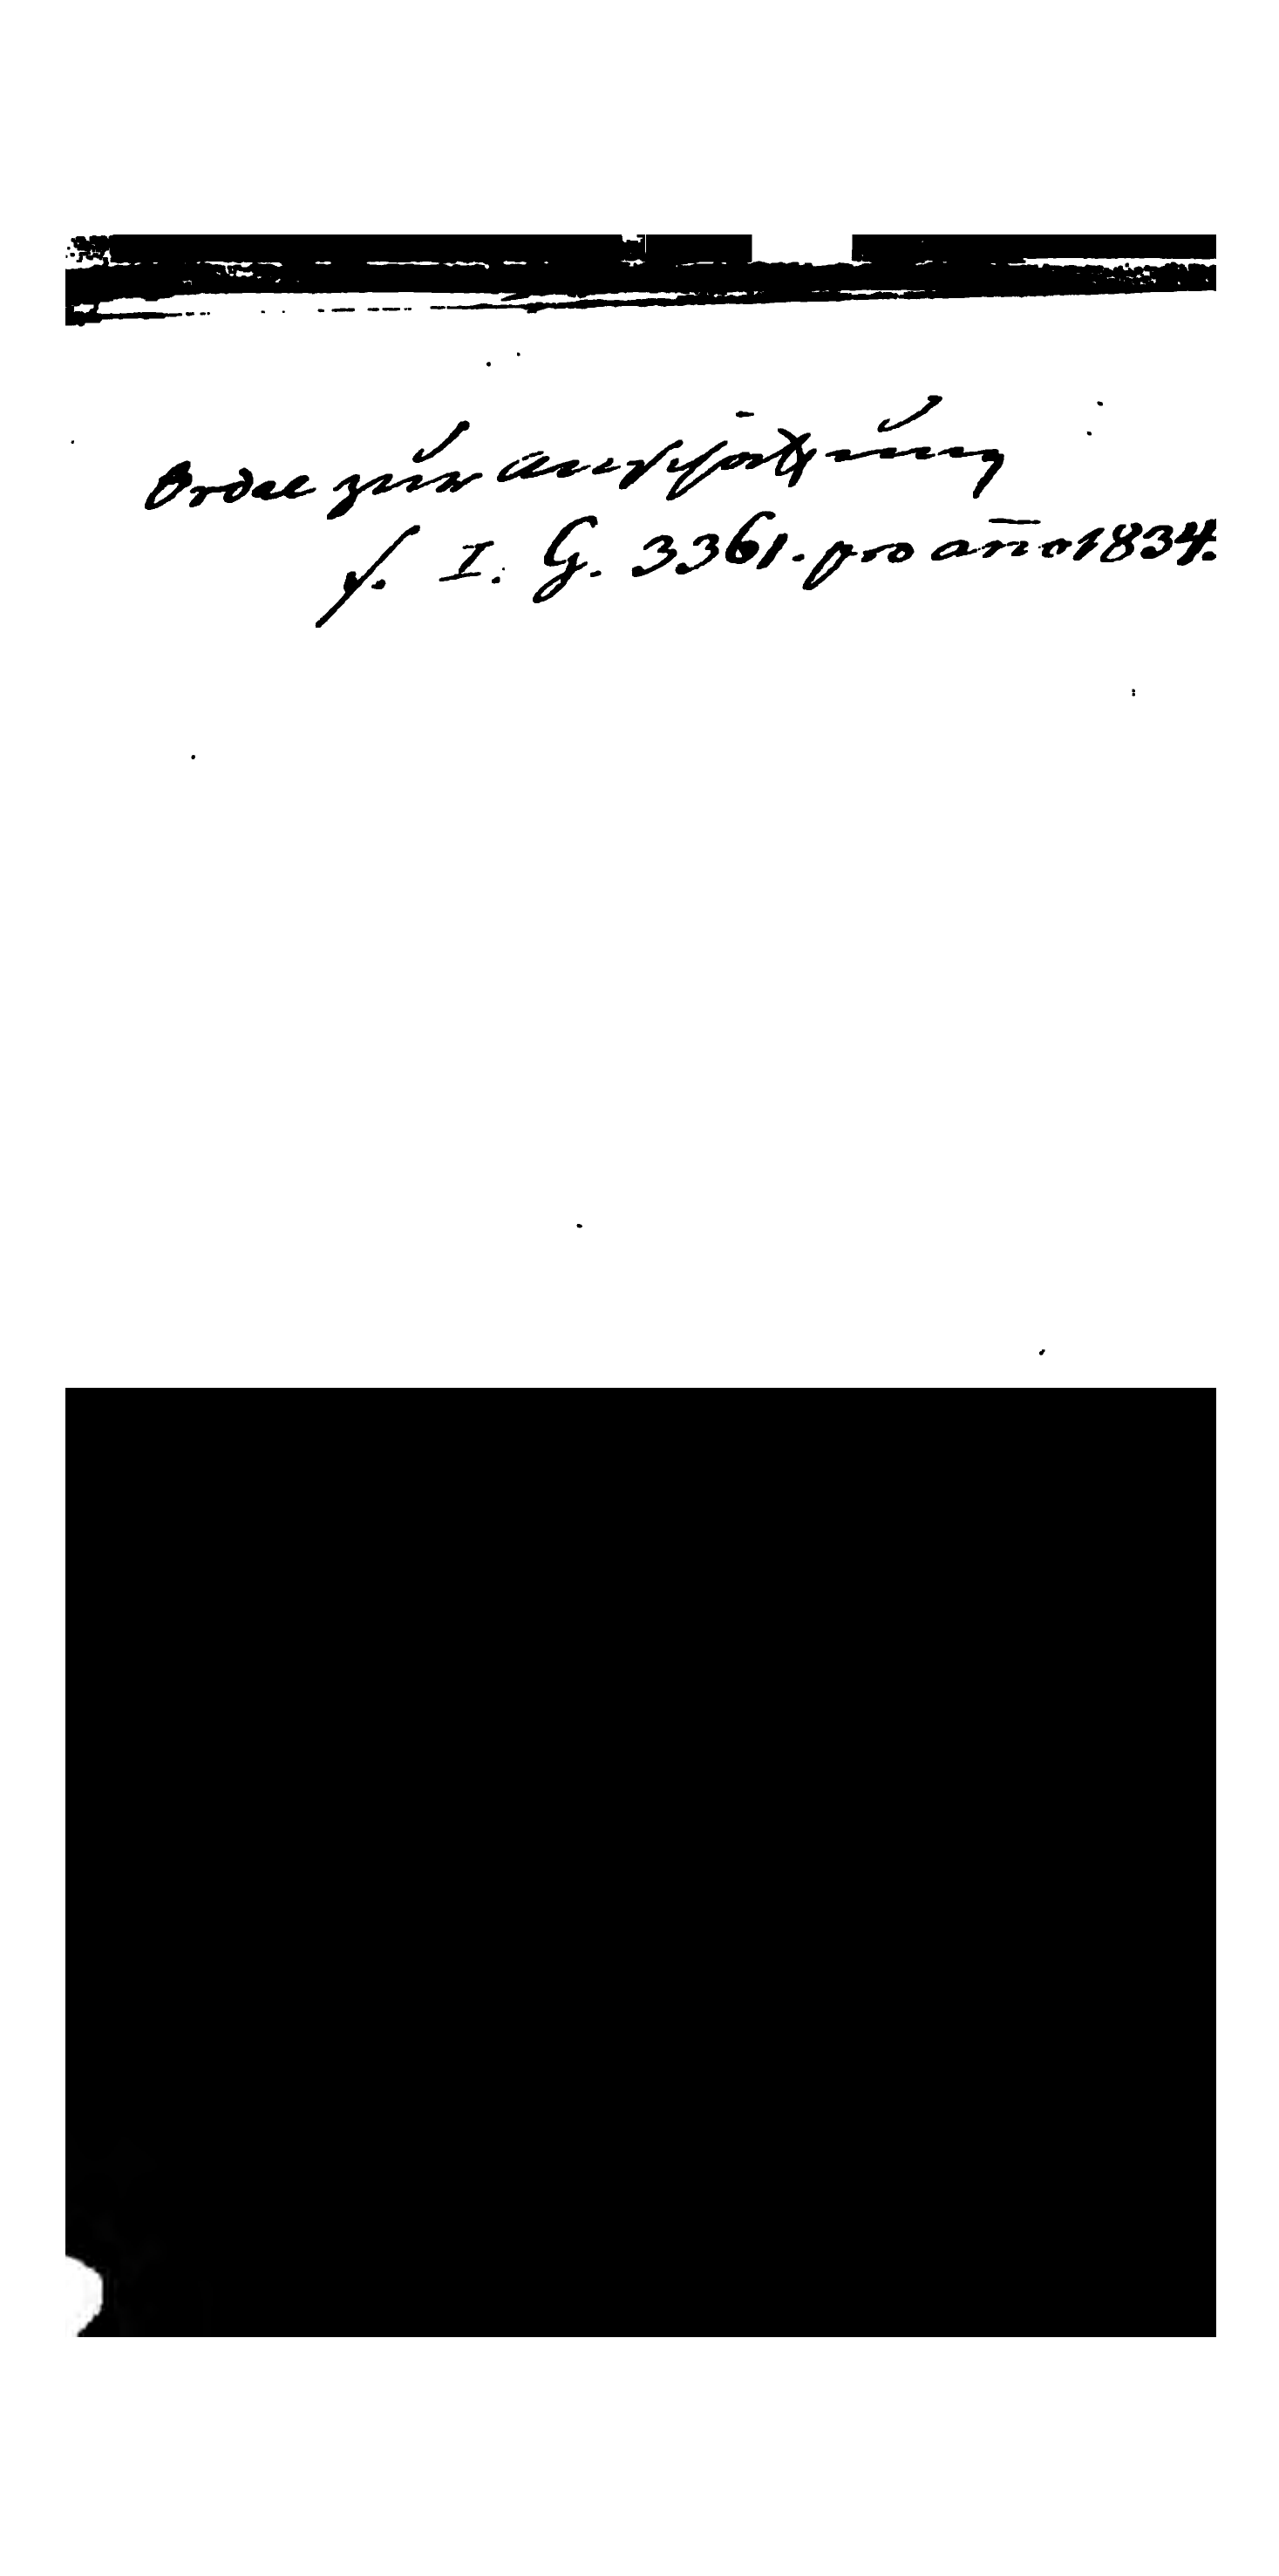 Ordre zur Ausschörtzung
s. I. G. 3361. pro año 1834.